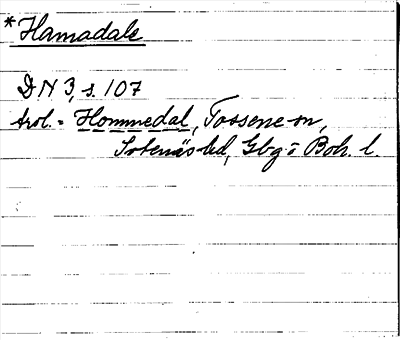 *Hamadale
DN 3, s. 107
trol. = Hommedal, Tossene sn,
Sotenäs hd, Gbg o Boh. l.